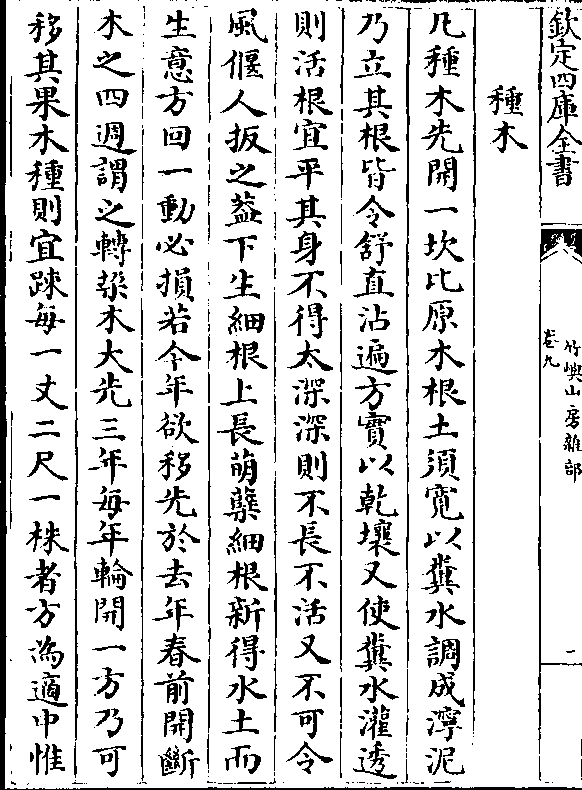 欽定四庫全書
竹嶼山房雜部
卷九
二
種木
凡種木先開一坎比原木根土須寬以糞水調成濘泥
乃立其根皆令舒直沾遍方實以乾壤又使糞水灌透
則活根宜平其身不得太深深則不長不活又不可令
風偃人扳之葢下生細根上長萌蘖細根新得水土而
生意方回一動必損若今年欲移先於去年春前開斷
木之四週謂之轉垜木大先三年每年輪開一方乃可
移其果木種則宜踈每一丈二尺一株者方為適中惟